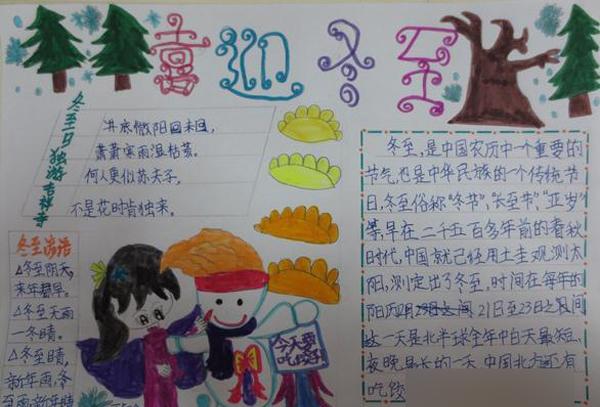 喜迎冬至
冬至日独游吉祥寺
井底微阳回未回，
萧萧寒雨湿枯荄。
何人更似苏夫子，
不是花时肯独来。
冬至谚语
△冬至阴天，
来年旱。
△冬至天雨
一冬晴。
△冬至晴，
新年雨，冬
至雨，新年晴
今天要
吃饺子
冬至，是中国农历中一个重要的
节气也是中华民族的一个传统节
日，冬至俗称"冬节"，"长至节"，"亚岁"
等，早在二千五百多年前的春秋
时代，中国就已使用土圭观测太
阳，测定出了冬至，时间在每年的
阳历12月21日至23日之间
这一天是北半球全年中白天最短、
夜晚最长的一天，中国北方还有
吃饺